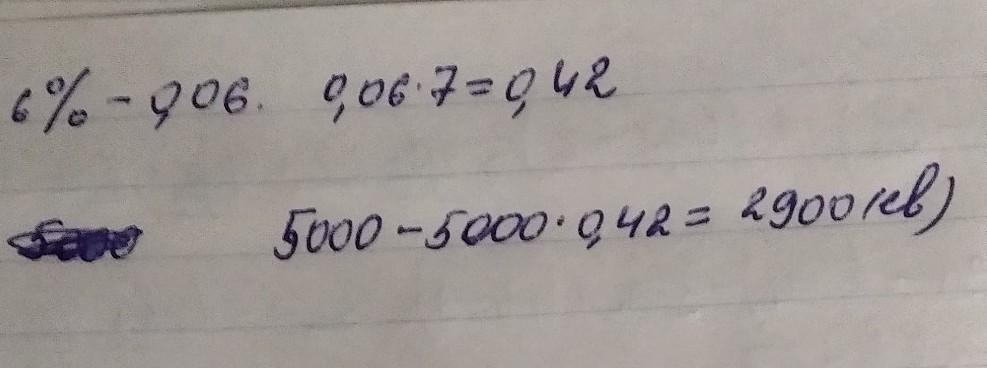 6% - 0,06. 0,06·7=0,42
5000-5000·0,42= 2900(кв)